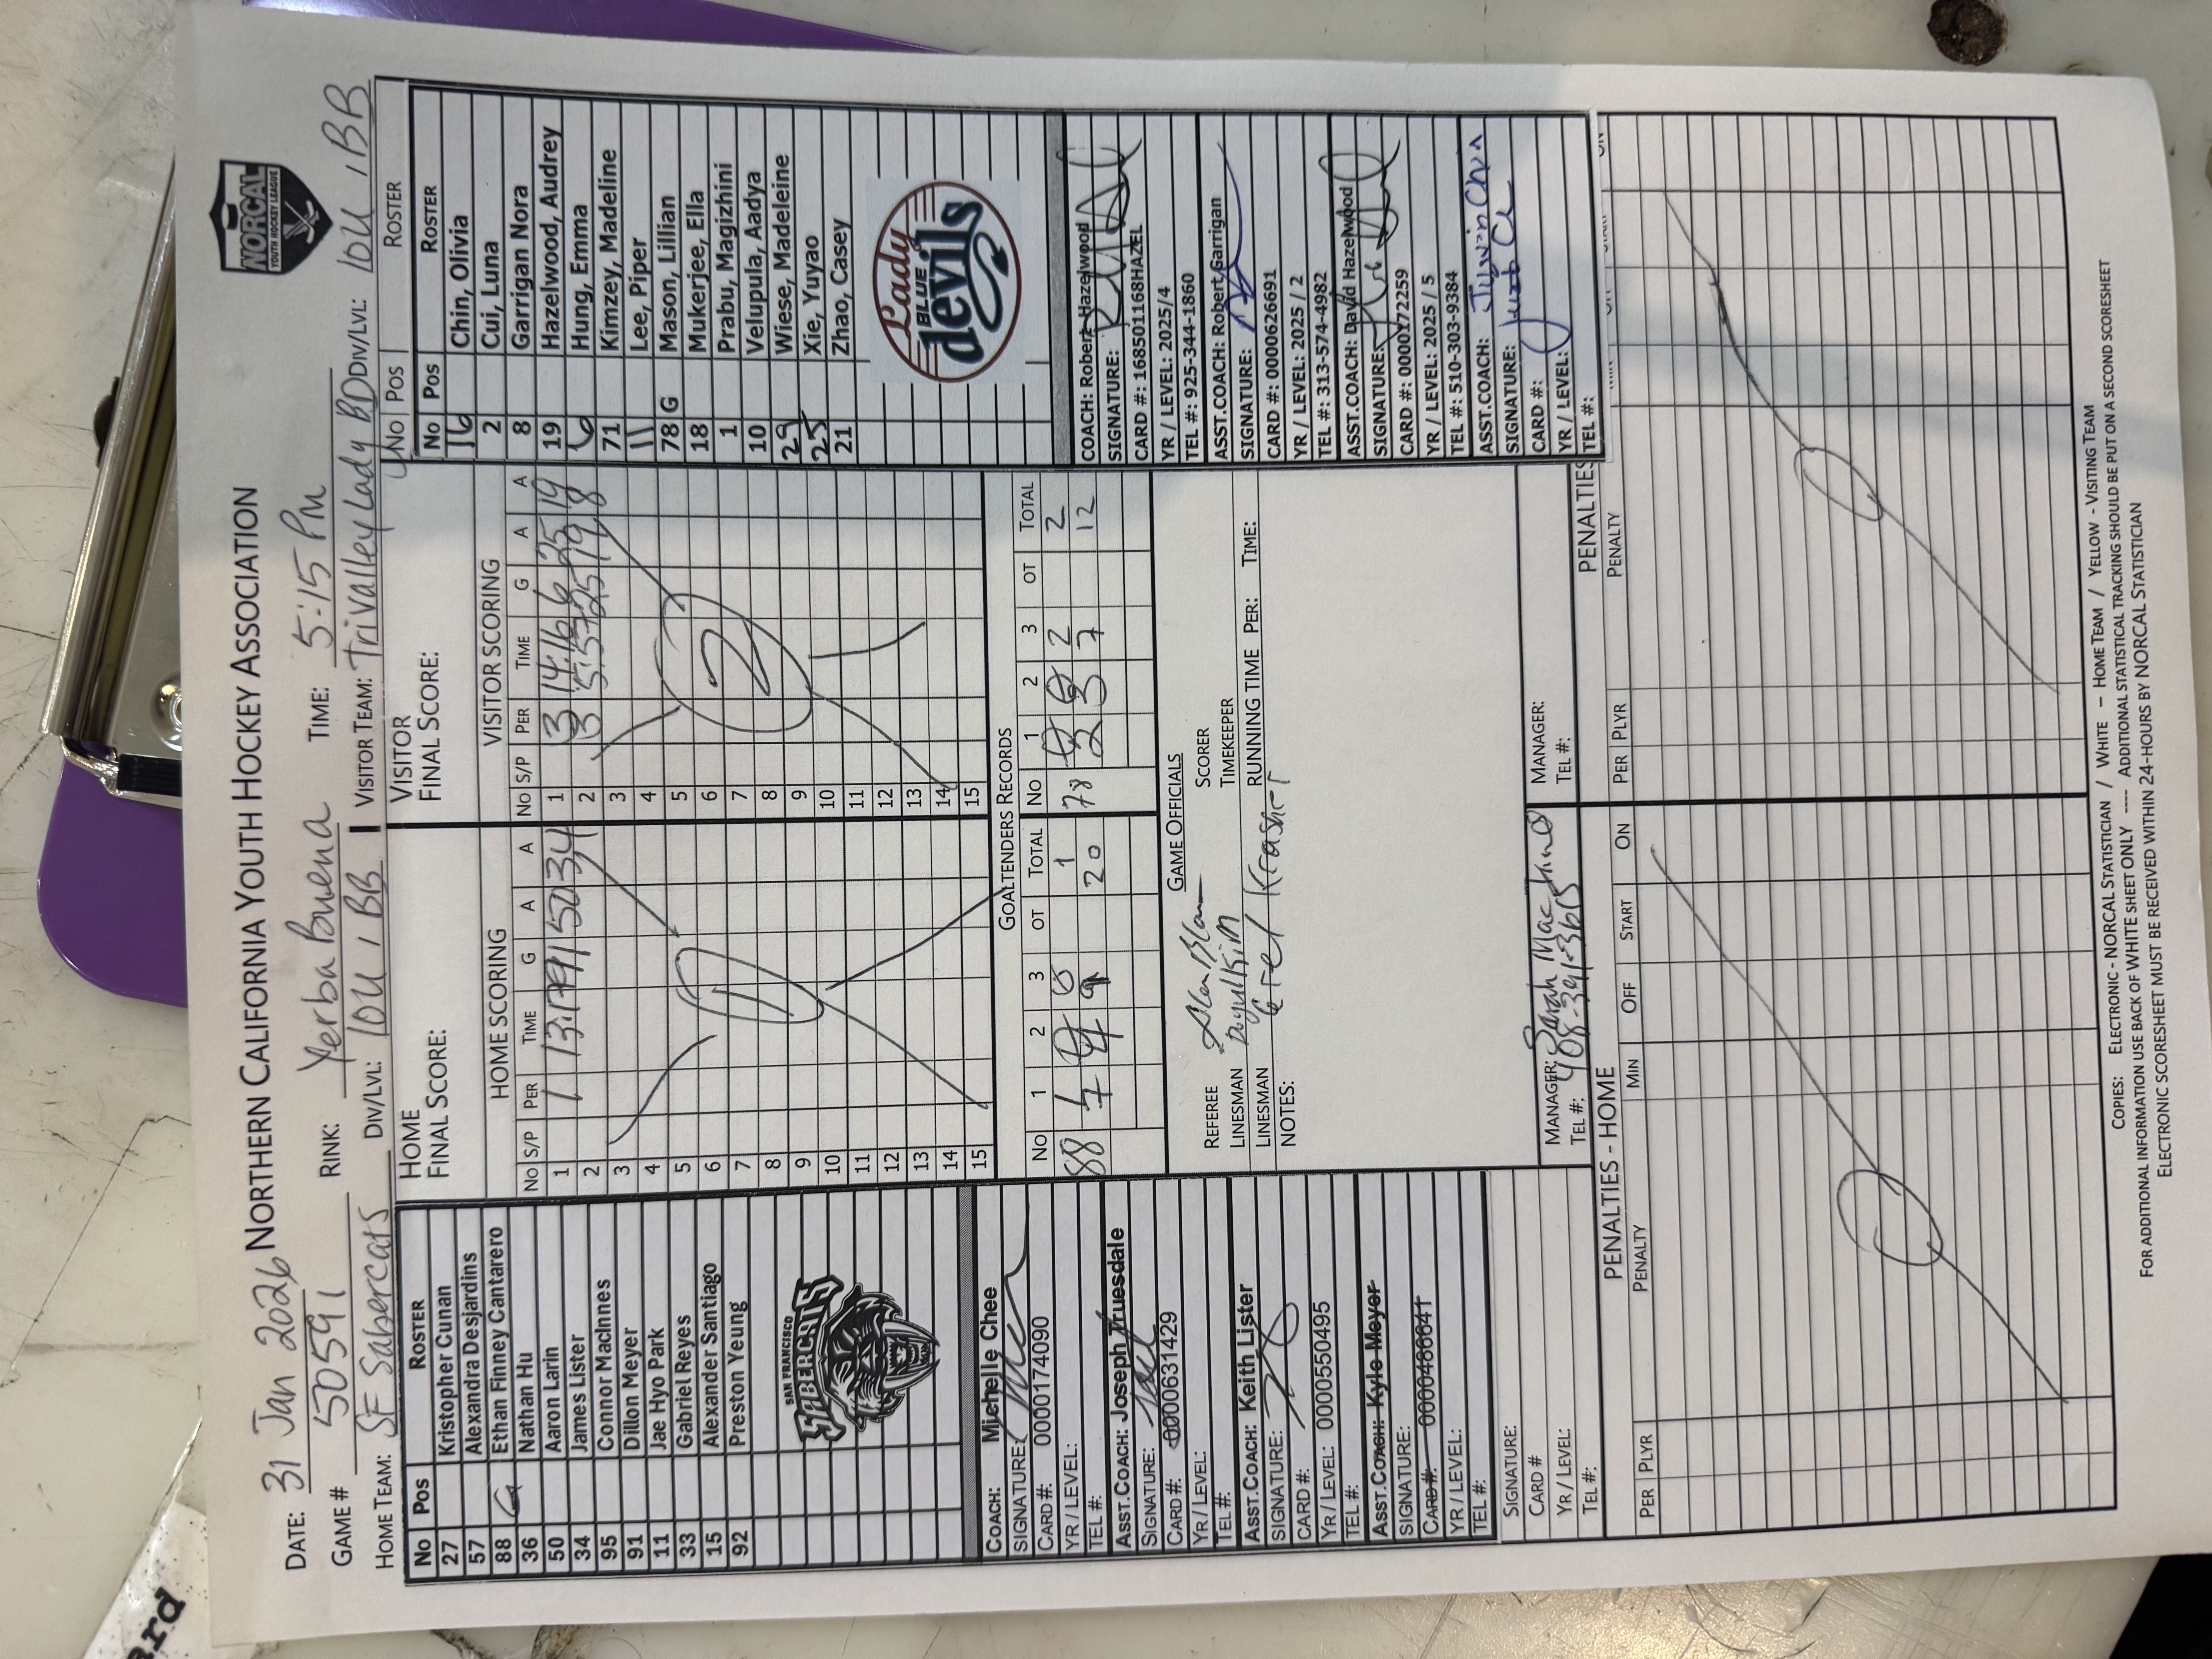 NORTHERN CALIFORNIA YOUTH HOCKEY ASSOCIATION
NORCAL
YOUTH HOCKEY LEAGUE
DATE: 31 Jan 2026
GAME # 50591
RINK: Yerba Buena
TIME: 5:15 PM
HOME TEAM: SF Sabercats
DIV/LVL: 10U / BB
VISITOR TEAM: Trivalley Lady BD
DIV/LVL: 10U / BB
No Pos ROSTER
27 Kristopher Cunan
57 Alexandra Desjardins
88 G Ethan Finney Cantarero
36 Nathan Hu
50 Aaron Larin
34 James Lister
95 Connor MacInnes
91 Dillon Meyer
11 Jae Hyo Park
33 Gabriel Reyes
15 Alexander Santiago
92 Preston Yeung
SAN FRANCISCO
SABERCATS
COACH: Michelle Chee
SIGNATURE:
CARD #: 0000174090
YR / LEVEL:
TEL #:
ASST.COACH: Joseph Truesdale
SIGNATURE:
CARD #: 0000631429
YR / LEVEL:
TEL #:
ASST.COACH: Keith Lister
SIGNATURE:
CARD #:
YR / LEVEL: 0000550495
TEL #:
ASST.COACH: Kyle Meyer
SIGNATURE:
CARD #: 0000486641
YR / LEVEL:
TEL #:
SIGNATURE:
CARD #
YR / LEVEL:
TEL #:
HOME
FINAL SCORE:
HOME SCORING
No S/P PER TIME G A A
1 1 13:17 91 50 34
2
3
4
5
6
7
8
9
10
11
12
13
14
15
1
VISITOR
FINAL SCORE:
VISITOR SCORING
No S/P PER TIME G A A
1 3 14:16 6 25 19
2 3 5:57 25 19 8
3
4
5
6
7
8
9
10
11
12
13
14
15
2
GOALTENDERS RECORDS
No 1 2 3 OT TOTAL
88 7 4 9 20
No 1 2 3 OT TOTAL
78 0 0 2 2
2 3 7 12
GAME OFFICIALS
REFEREE
SCORER
LINESMAN
TIMEKEEPER
LINESMAN
RUNNING TIME PER: TIME:
NOTES:
MANAGER: Sarah MacInnes
TEL #: 408-391-3615
MANAGER:
TEL #:
No Pos ROSTER
No Pos ROSTER
16 Chin, Olivia
2 Cui, Luna
8 Garrigan Nora
19 Hazelwood, Audrey
6 Hung, Emma
71 Kimzey, Madeline
11 Lee, Piper
78 G Mason, Lillian
18 Mukerjee, Ella
1 Prabu, Magizhini
10 Velupula, Aadya
29 Wiese, Madeleine
25 Xie, Yuyao
21 Zhao, Casey
Lady
BLUE
devils
COACH: Robert Hazelwood
SIGNATURE:
CARD #: 168501168HAZEL
YR / LEVEL: 2025/4
TEL #: 925-344-1860
ASST.COACH: Robert Garrigan
SIGNATURE:
CARD #: 0000626691
YR / LEVEL: 2025 / 2
TEL #: 313-574-4982
ASST.COACH: David Hazelwood
SIGNATURE:
CARD #: 0000172259
YR / LEVEL: 2025 / 5
TEL #: 510-303-9384
ASST.COACH:
SIGNATURE:
CARD #:
YR / LEVEL:
TEL #:
PENALTIES - HOME
PER PLYR PENALTY MIN OFF START ON
PENALTIES
PER PLYR PENALTY
COPIES: ELECTRONIC - NORCAL STATISTICIAN / WHITE – HOME TEAM / YELLOW - VISITING TEAM
FOR ADDITIONAL INFORMATION USE BACK OF WHITE SHEET ONLY ---- ADDITIONAL STATISTICAL TRACKING SHOULD BE PUT ON A SECOND SCORESHEET
ELECTRONIC SCORESHEET MUST BE RECEIVED WITHIN 24-HOURS BY NORCAL STATISTICIAN
ard